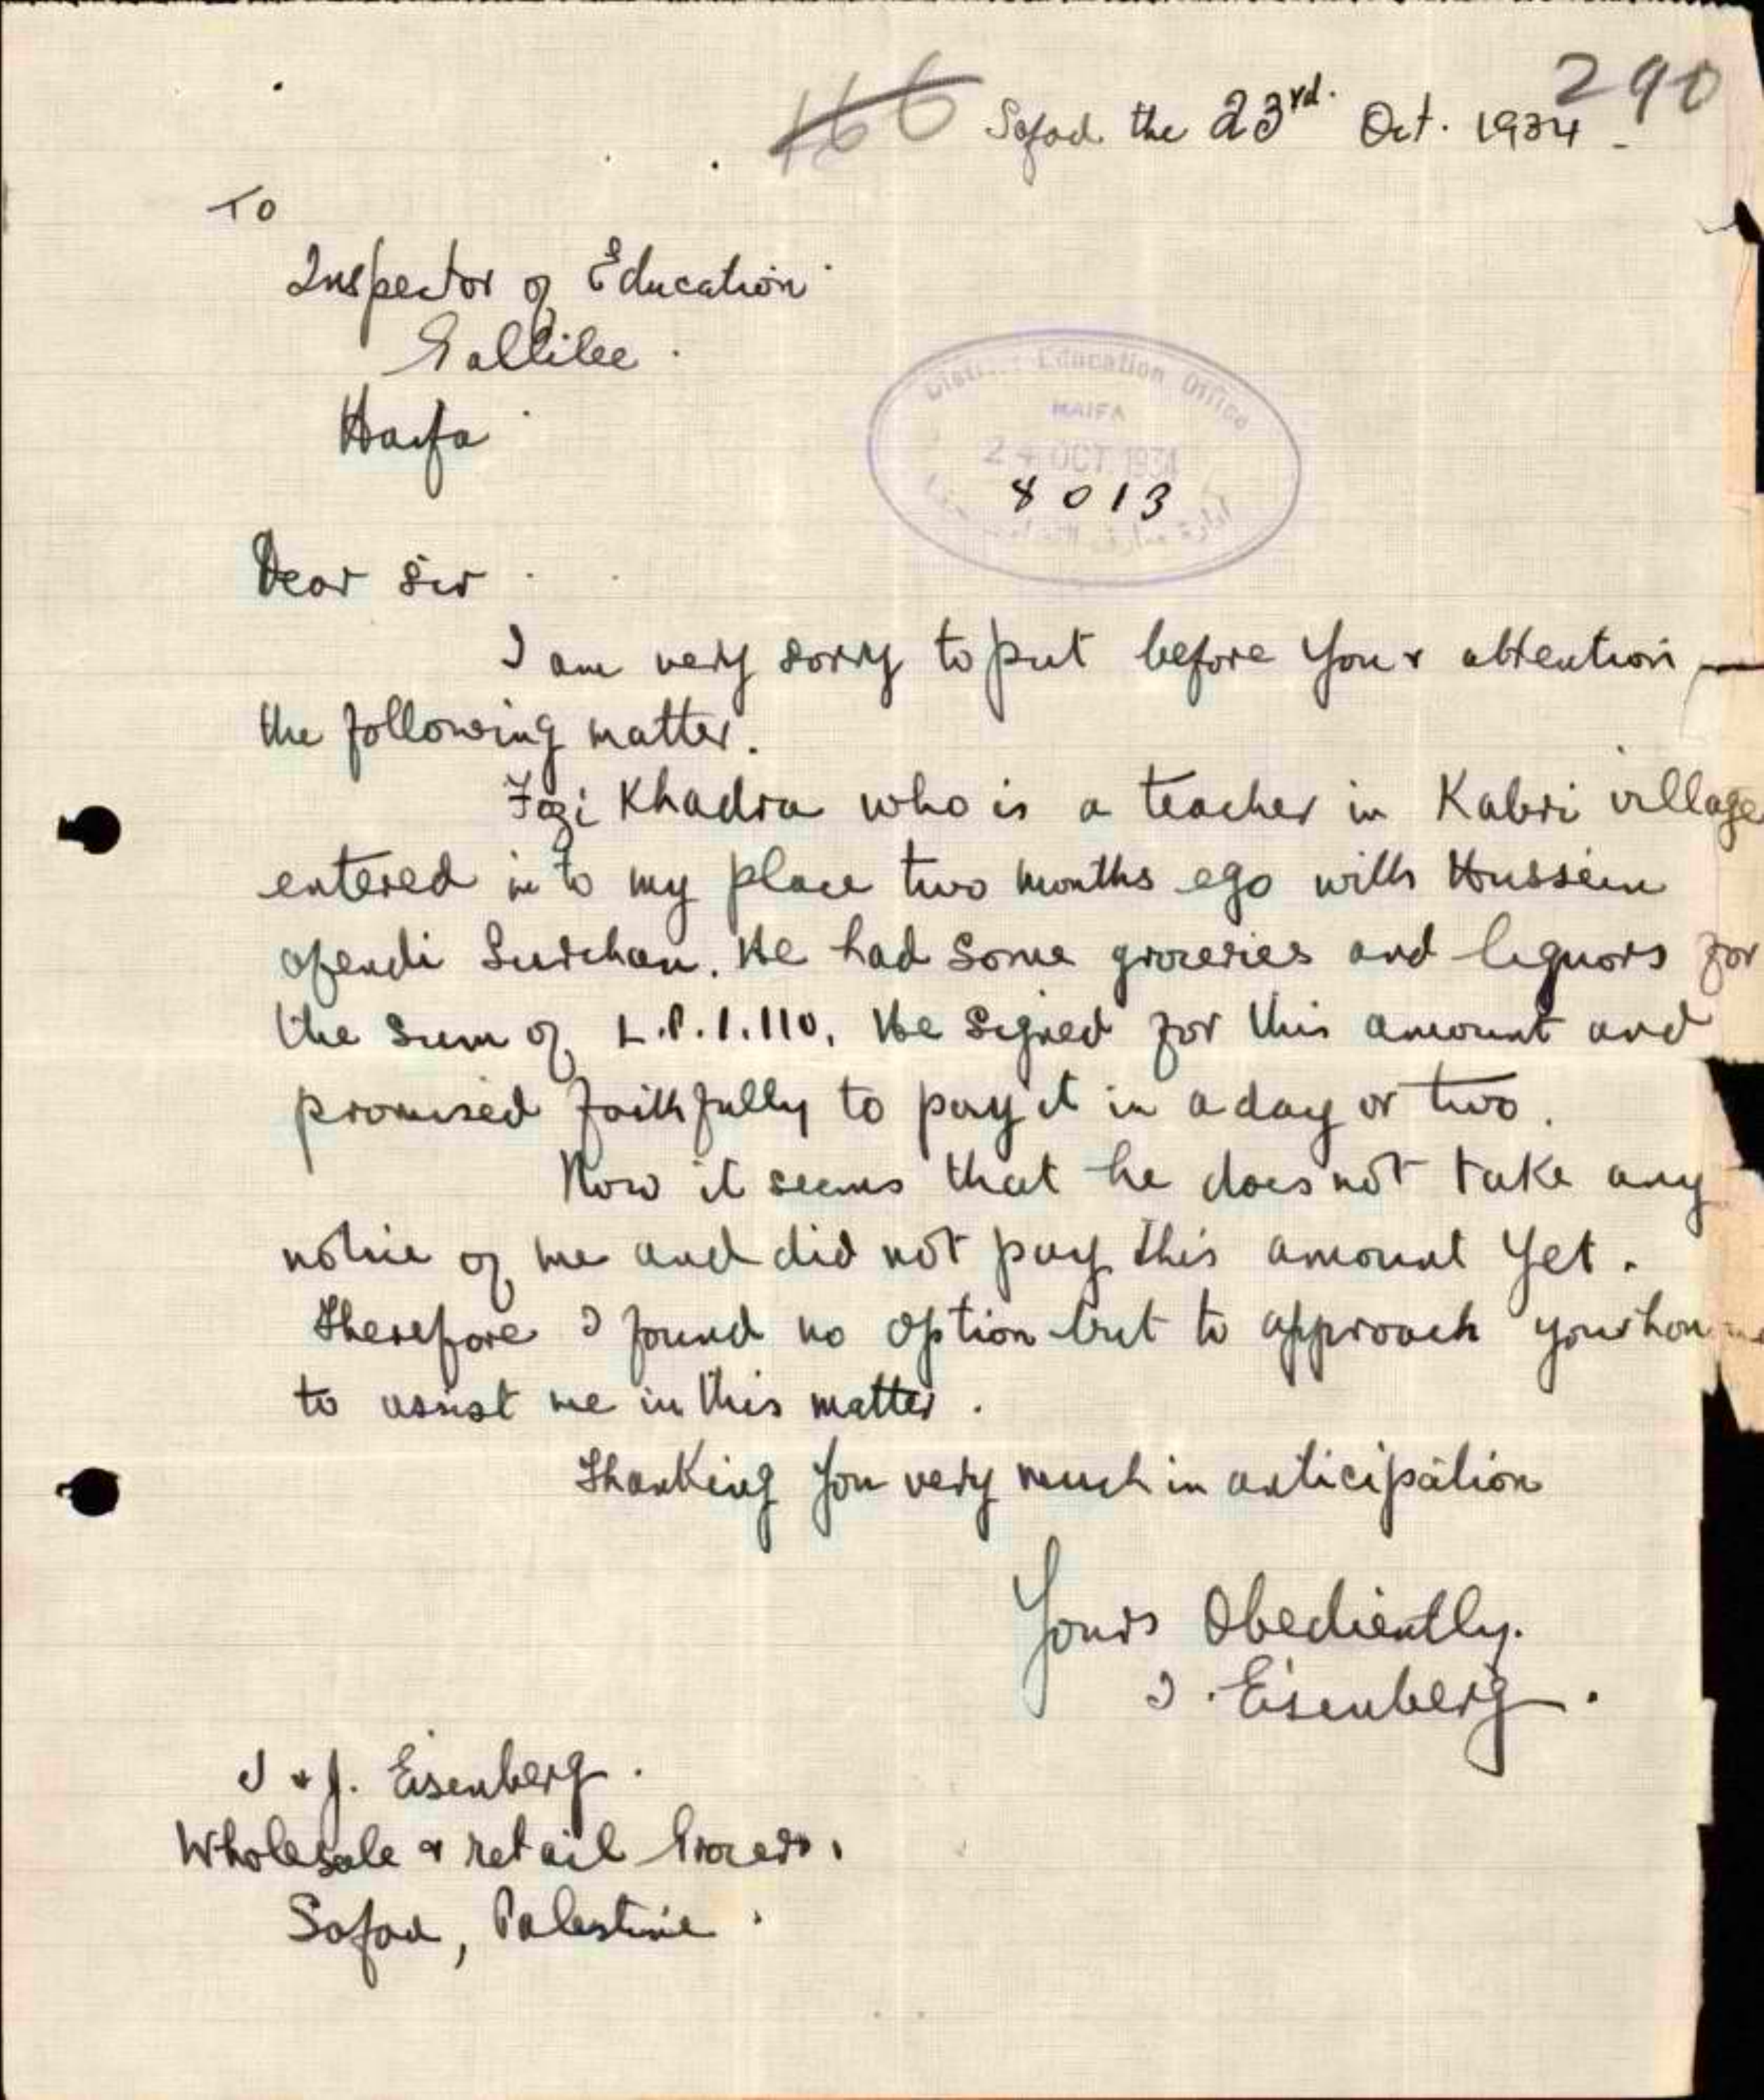 166 290
Safad the 23rd. Oct. 1934 -
To
Inspector of Education
Gallilee.
Haifa
District Education Office
HAIFA
24 OCT 1934
8013
Dear Sir
I am very sorry to put before your attention
the following matter.
Fozi Khadra who is a teacher in Kabri village
entered in to my place two months ego with Hussein
efendi. He had some groceries and liquors for
the sum of L.P.1.110. He signed for this amount and
promised faithfully to pay it in a day or two.
Now it seems that he does not take any
notice of me and did not pay this amount yet.
Therefore I found no option but to approach your
to assist me in this matter.
Thanking you very much in anticipation
Yours Obediently.
I. Eisenberg.
I & J. Eisenberg.
Wholesale & retail Grocers.
Safad, Palestine.